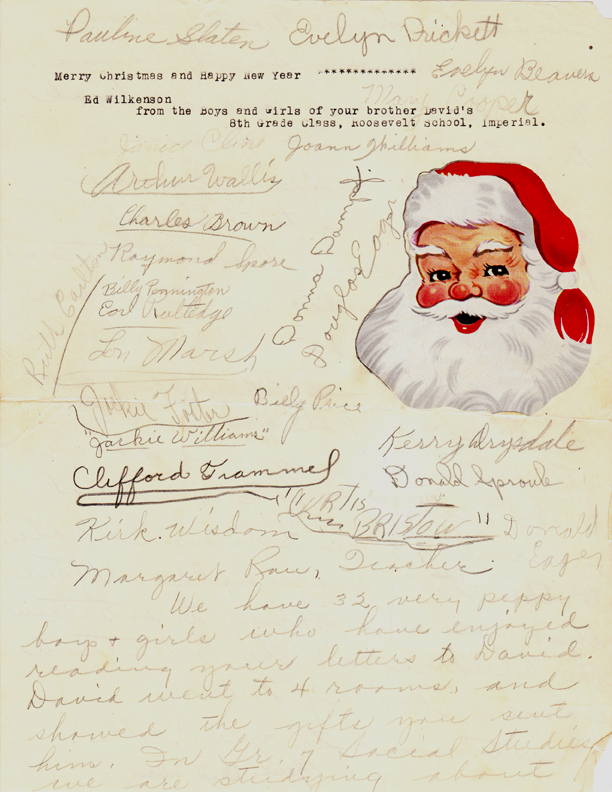 Pauline Slaten Evelyn Prickett
Merry Christmas and Happy New Year ************* Evelyn Beavers
Ed Wilkenson Mary Cooper
from the Boys and Girls of your brother David's
8th Grade Class, Roosevelt School, Imperial.
Janice Cline Joann Williams
Arthur Wallis
Charles Brown
Donna Dampf
Douglas Eager
Raymond Spore
Billy Pennington
Earl Rutledge
Ruth
Len Marsh
Jackie Foster Billy Price
"Jackie Williams" Kerry Drysdale
Clifford Trammel Donald Sproul
"Curtis Bristow"
Kirk Wisdom Donald Eager
Margaret Rau, Teacher
We have 32 very peppy
boys + girls who have enjoyed
reading your letters to David.
David went to 4 rooms, and
showed the gifts you sent
him. In Gr. 7 Social Studies
we are studying about